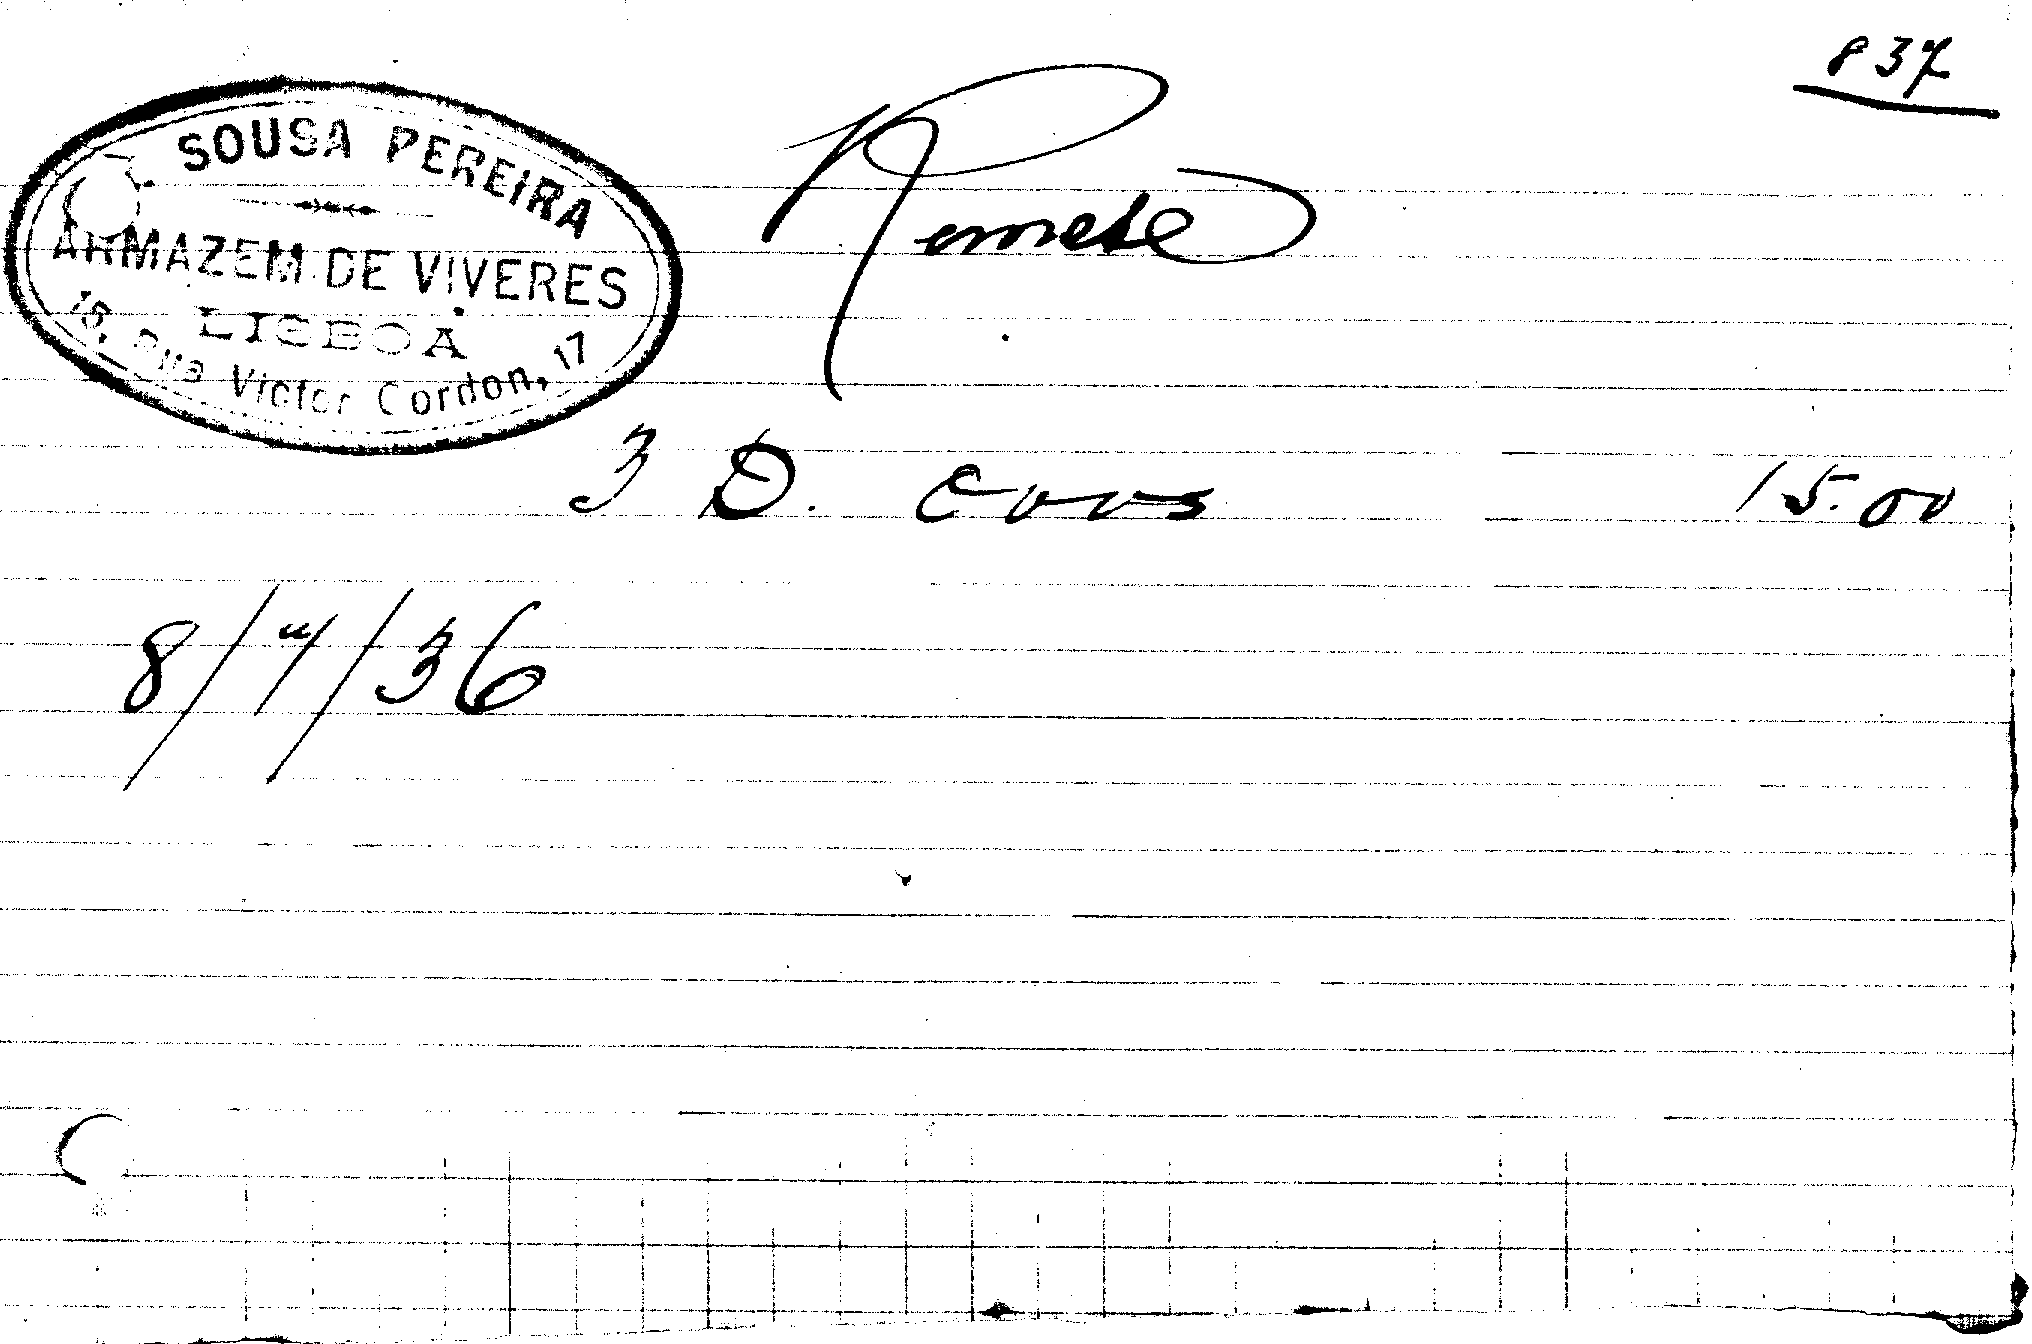 837
SOUSA PEREIRA
ARMAZEM DE VIVERES
LISBOA
15, Rua Victor Cordon, 17
3 D. ovos 15.00
8/7/36